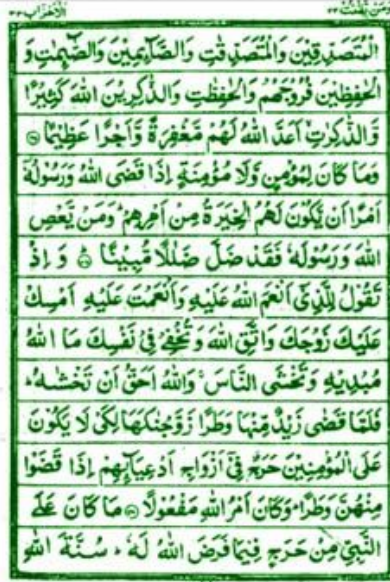 الاحزاب ٣٣ ومن يقنت ٢٢
الْمُتَصَدِّقِيْنَ وَالْمُتَصَدِّقٰتِ وَالصَّآئِمِيْنَ وَالصّٰٓئِمٰتِ وَ
الْحٰفِظِيْنَ فُرُوْجَهُمْ وَالْحٰفِظٰتِ وَالذّٰكِرِيْنَ اللّٰهَ كَثِيْرًا
وَّالذّٰكِرٰتِ اَعَدَّ اللّٰهُ لَهُمْ مَّغْفِرَةً وَّاَجْرًا عَظِيْمًا ۝
وَمَا كَانَ لِمُؤْمِنٍ وَّلَا مُؤْمِنَةٍ اِذَا قَضَى اللّٰهُ وَرَسُوْلُهٗٓ
اَمْرًا اَنْ يَّكُوْنَ لَهُمُ الْخِيَرَةُ مِنْ اَمْرِهِمْ ؕ وَمَنْ يَّعْصِ
اللّٰهَ وَرَسُوْلَهٗ فَقَدْ ضَلَّ ضَلٰلًا مُّبِيْنًا ۝ وَ اِذْ
تَقُوْلُ لِلَّذِيْٓ اَنْعَمَ اللّٰهُ عَلَيْهِ وَاَنْعَمْتَ عَلَيْهِ اَمْسِكْ
عَلَيْكَ زَوْجَكَ وَاتَّقِ اللّٰهَ وَتُخْفِيْ فِيْ نَفْسِكَ مَا اللّٰهُ
مُبْدِيْهِ وَتَخْشَى النَّاسَ ۚ وَاللّٰهُ اَحَقُّ اَنْ تَخْشٰىهُ ؕ
فَلَمَّا قَضٰى زَيْدٌ مِّنْهَا وَطَرًا زَوَّجْنٰكَهَا لِكَيْ لَا يَكُوْنَ
عَلَى الْمُؤْمِنِيْنَ حَرَجٌ فِيْٓ اَزْوَاجِ اَدْعِيَآئِهِمْ اِذَا قَضَوْا
مِنْهُنَّ وَطَرًا ؕ وَكَانَ اَمْرُ اللّٰهِ مَفْعُوْلًا ۝ مَا كَانَ عَلَى
النَّبِيِّ مِنْ حَرَجٍ فِيْمَا فَرَضَ اللّٰهُ لَهٗ ؕ سُنَّةَ اللّٰهِ